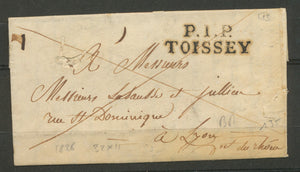 P.I.P.
TOISSEY
A Messieurs
Messieurs et jullien
rue St Dominique
à Lyon
1828 32x11